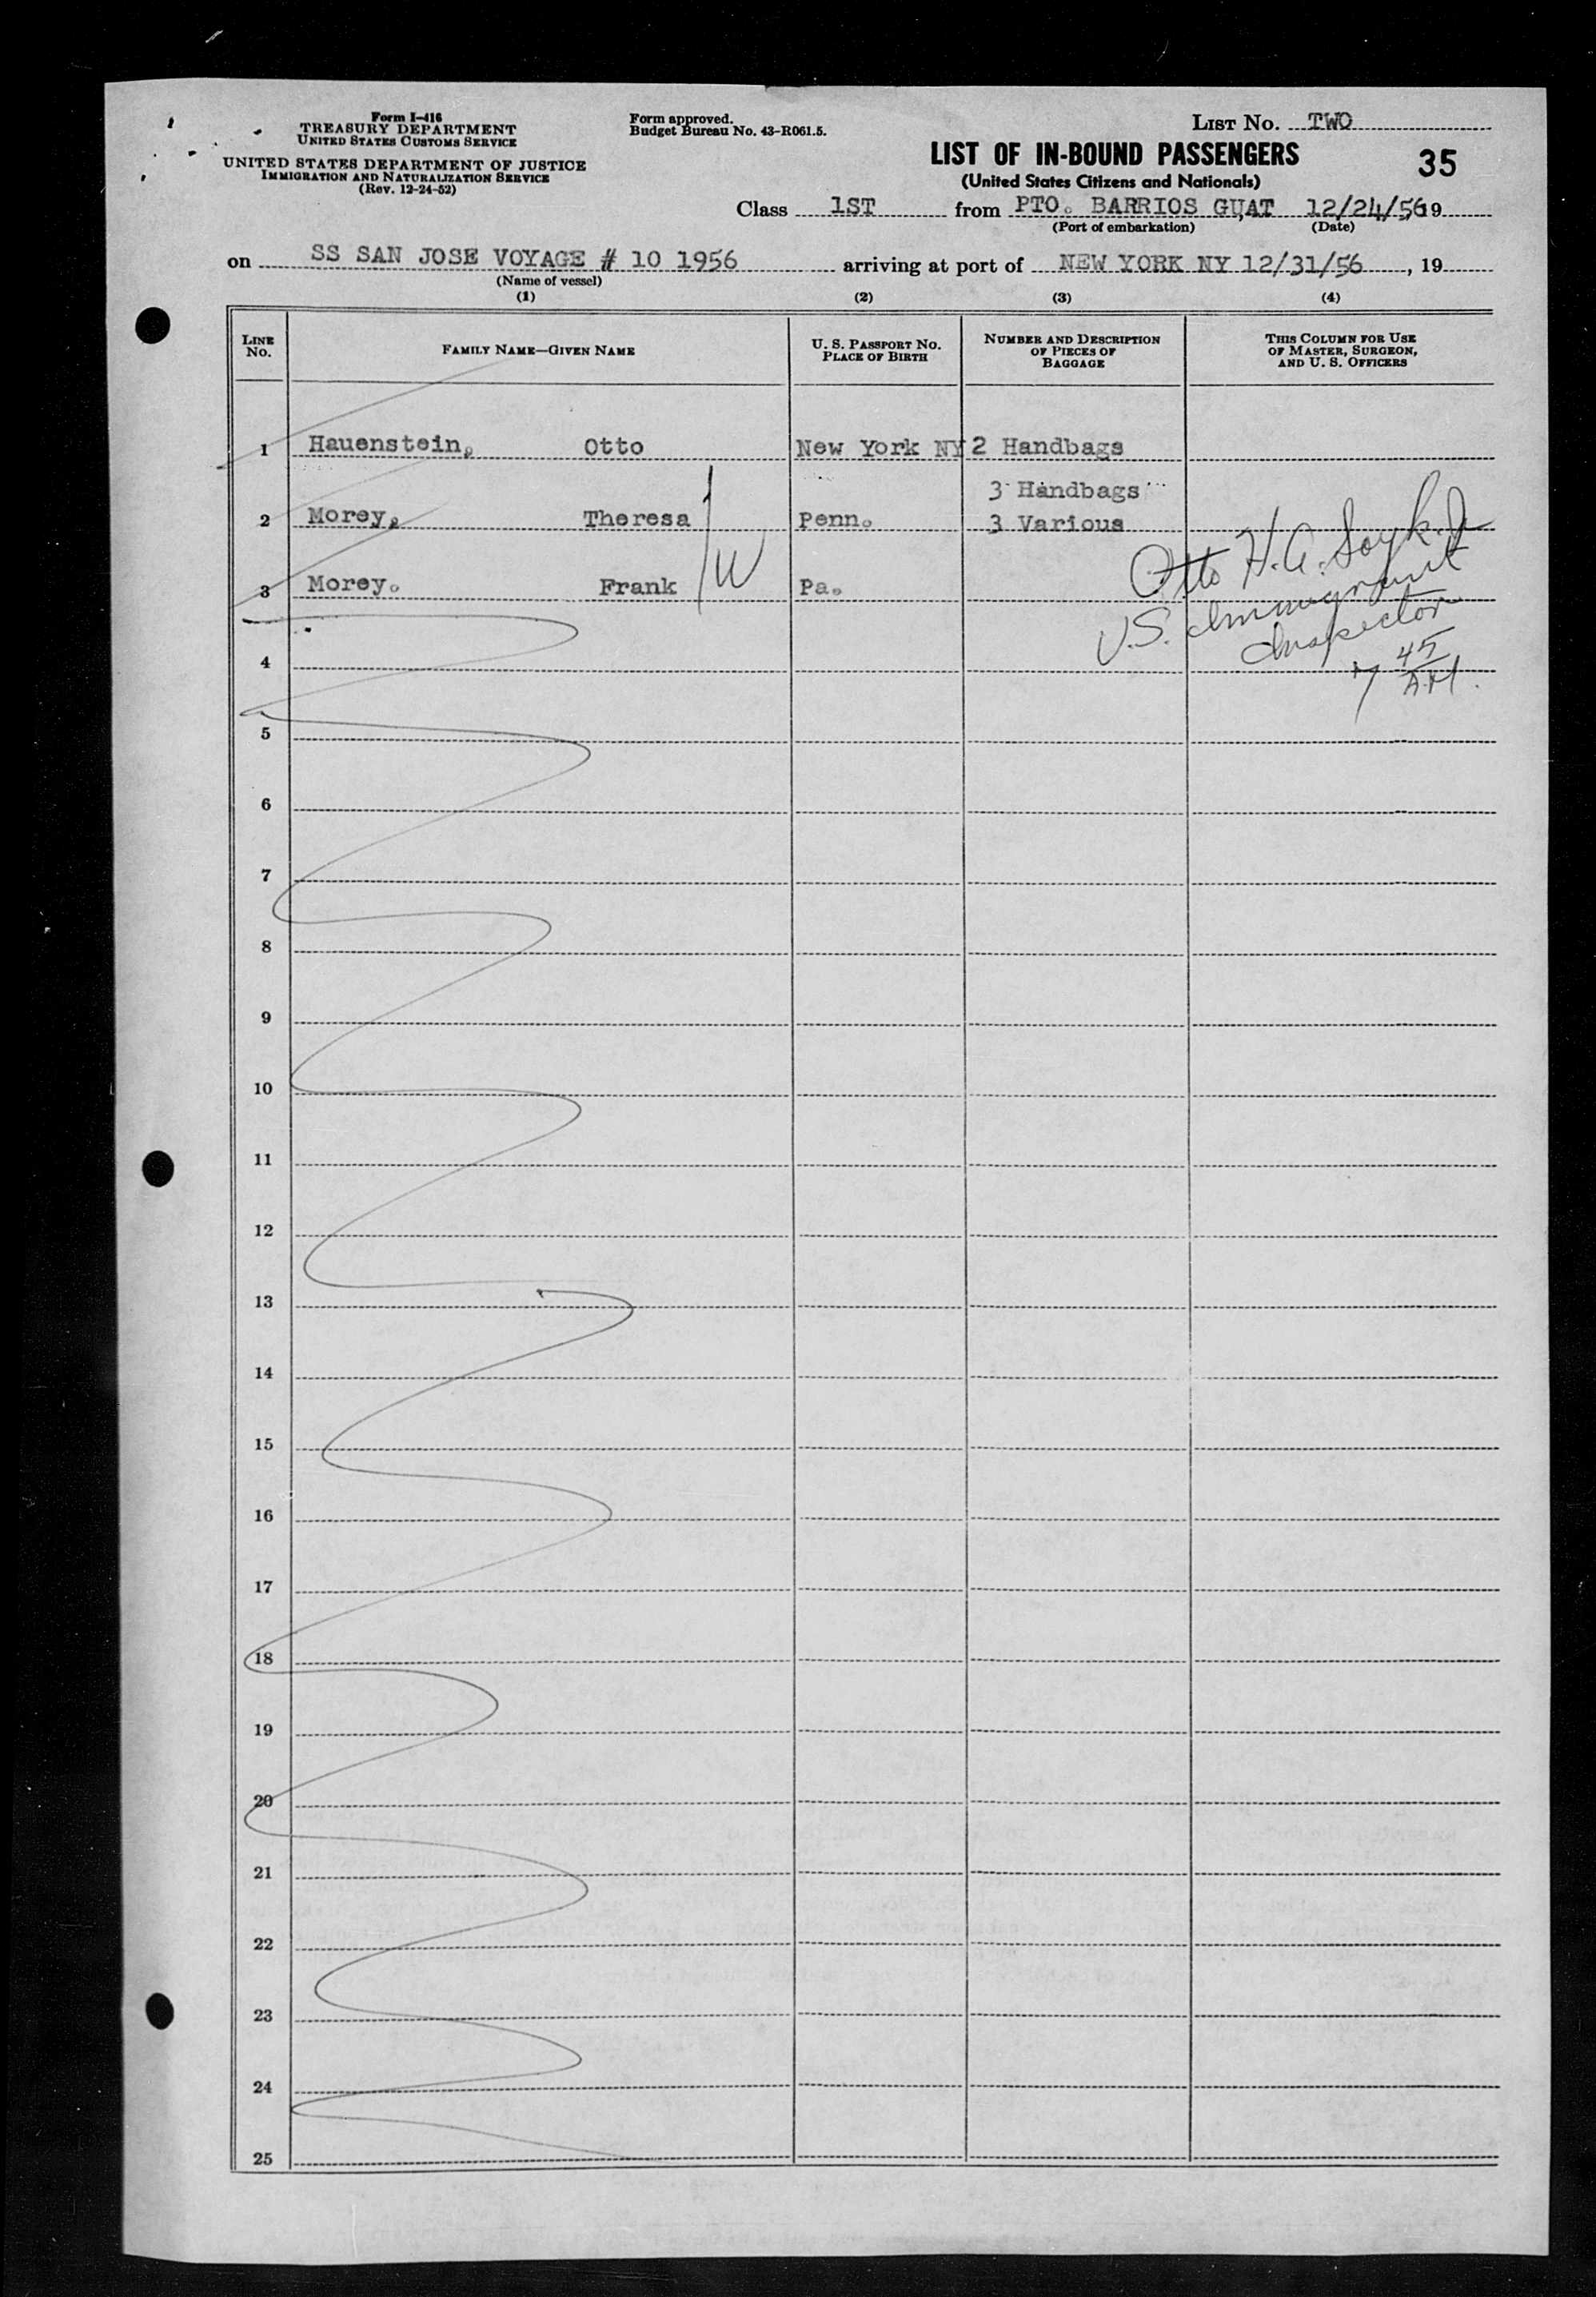 Form I-416
TREASURY DEPARTMENT
UNITED STATES CUSTOMS SERVICE
UNITED STATES DEPARTMENT OF JUSTICE
IMMIGRATION AND NATURALIZATION SERVICE
(Rev. 12-24-52)
Form approved.
Budget Bureau No. 43-R061.5.
LIST No. TWO
LIST OF IN-BOUND PASSENGERS
35
(United States Citizens and Nationals)
Class 1ST from PTO. BARRIOS GUAT 12/24/56, 19
(Port of embarkation) (Date)
on SS SAN JOSE VOYAGE # 10 1956 arriving at port of NEW YORK NY 12/31/56, 19
(Name of vessel)
(1) (2) (3) (4)
LINE No. FAMILY NAME—GIVEN NAME U. S. PASSPORT No. PLACE OF BIRTH NUMBER AND DESCRIPTION OF PIECES OF BAGGAGE THIS COLUMN FOR USE OF MASTER, SURGEON, AND U. S. OFFICERS
1 Hauenstein, Otto New York NY 2 Handbags
3 Handbags
2 Morey, Theresa Penn. 3 Various
3 Morey. Frank Pa.
W
Otto H.A.
U.S. Immigrant
Inspector
7 45 AM.
4
5
6
7
8
9
10
11
12
13
14
15
16
17
18
19
20
21
22
23
24
25